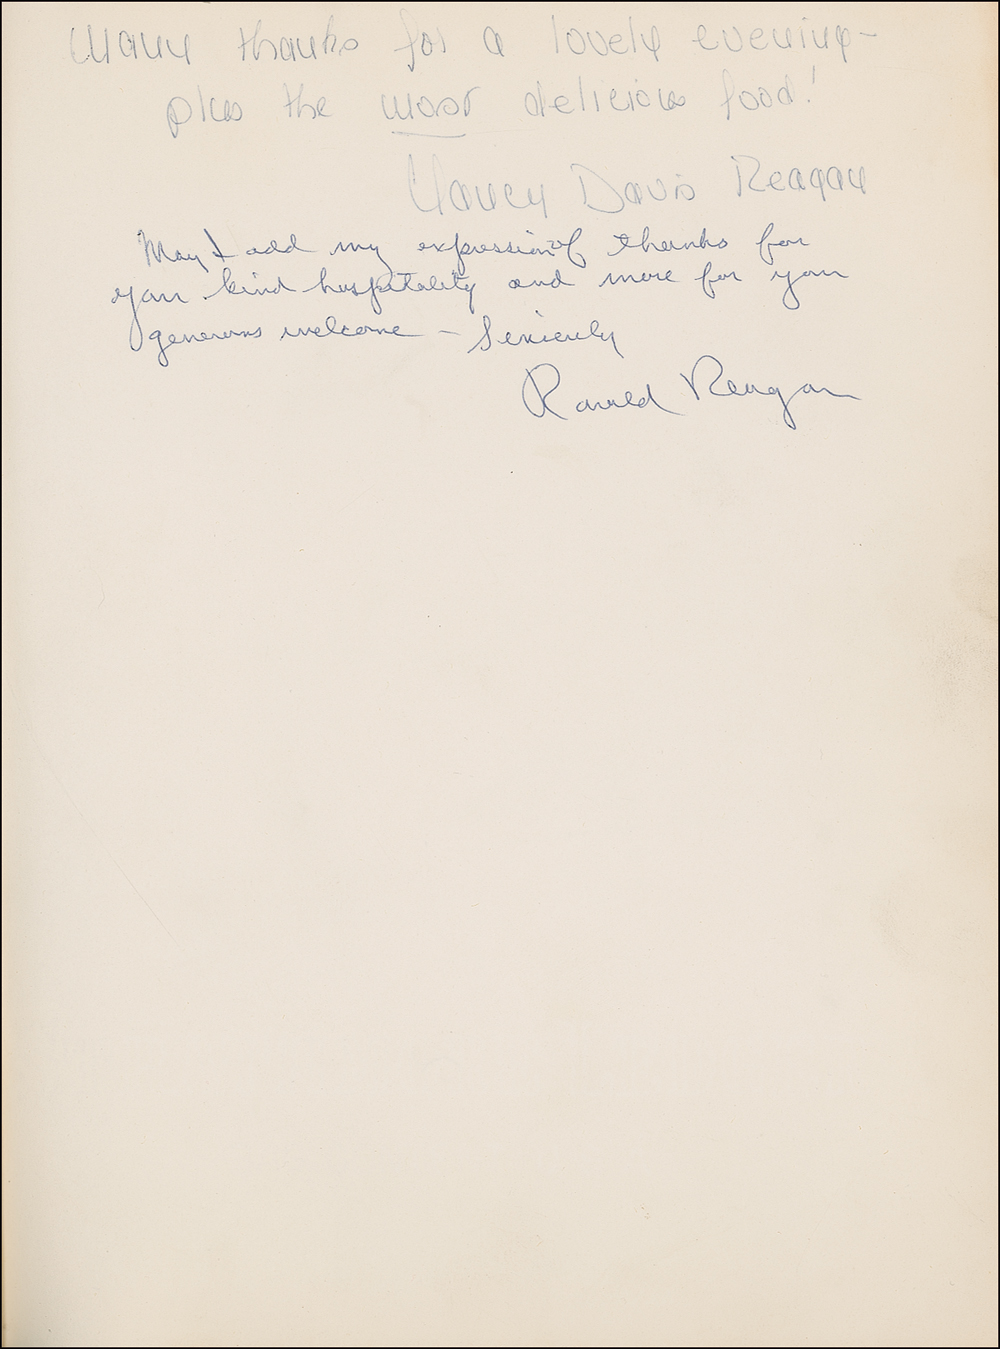 Many thanks for a lovely evening -
plus the most delicious food!
Nancy Davis Reagan
May I add my expression of thanks for
your kind hospitality and more for your
generous welcome - Sincerely
Ronald Reagan